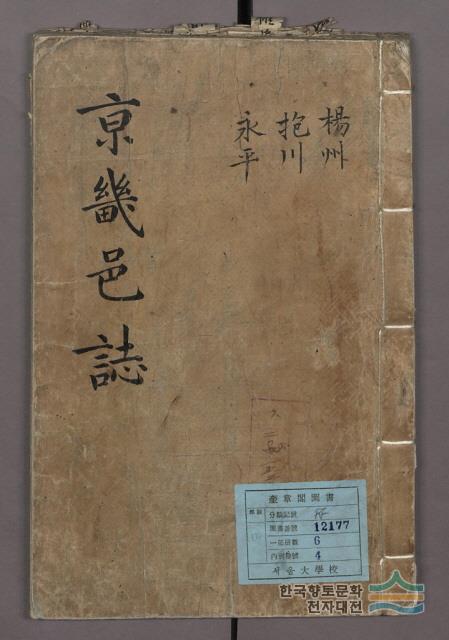 京畿邑誌
楊州
抱川
永平
奎章閣圖書
分類記號
圖書番號 12177
一部冊數 6
內別番號 4
서울大學校
한국향토문화
전자대전